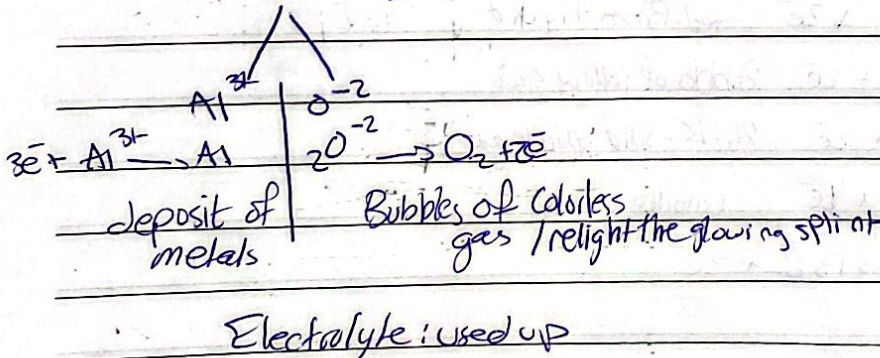 Al³⁺ | O⁻²
3e⁻ + Al³⁺ → Al | 2O⁻² → O₂ + 2e⁻
deposit of metals | Bubbles of Colorless gas / relight the glowing splint
Electrolyte : used up